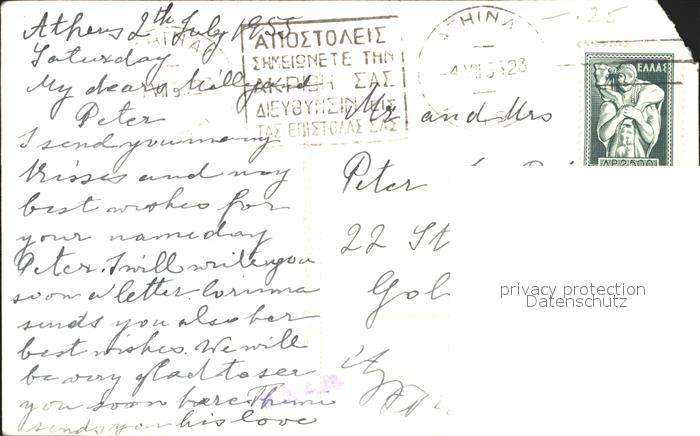 Athens 2th July 1955
Saturday
My dears Milly and
Peter
I send you many
kisses and my
best wishes for
your nameday
Peter. I will write you
soon a letter. Corinna
sends you also her
best wishes. We will
be very glad to see
you soon here.
sends you his love
ΑΠΟΣΤΟΛΕΙΣ
ΣΗΜΕΙΩΝΕΤΕ ΤΗΝ
ΑΚΡΙΒΗ ΣΑΣ
ΔΙΕΥΘΥΝΣΙΝ ΕΙΣ
ΤΑΣ ΕΠΙΣΤΟΛΑΣ ΣΑΣ
ΑΘΗΝΑ
-.25
ΕΛΛΑΣ
ΔΡ.2500
Mr and Mrs
Peter
22 St
Gol
privacy protection
Datenschutz